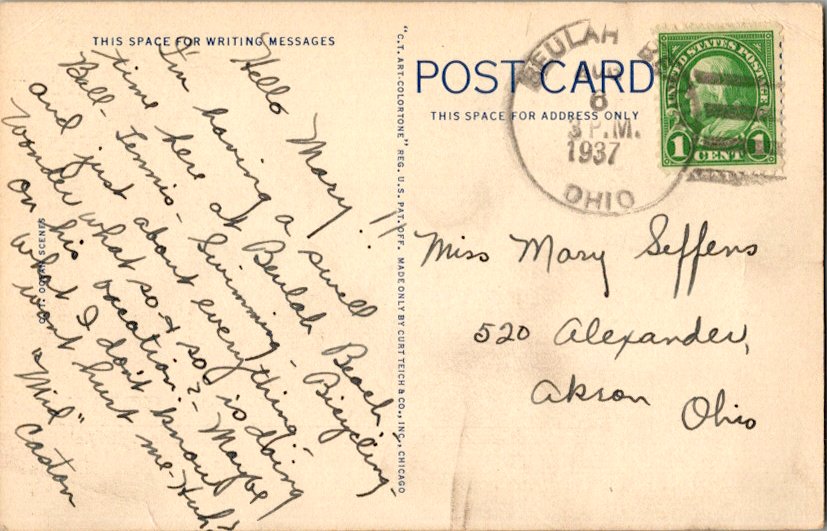 THIS SPACE FOR WRITING MESSAGES
Hello Mary!!
I'm having a swell
time here at Beulah Beach.
Ball-Tennis-Swimming-Bicycling-
and just about everything.-
Wonder what so & so is doing
on his vacation?-Maybe
what I don't know
wont hurt me-Huh?
"Mid"
Caston
OCEAN SCENES
"C.T. ART-COLORTONE" REG. U.S. PAT. OFF. MADE ONLY BY CURT TEICH & CO., INC., CHICAGO
POST CARD
THIS SPACE FOR ADDRESS ONLY
BEULAH
6
3 P.M.
1937
OHIO
UNITED STATES POSTAGE
1 CENT 1
Miss Mary Seffens
520 Alexander,
Akron
Ohio